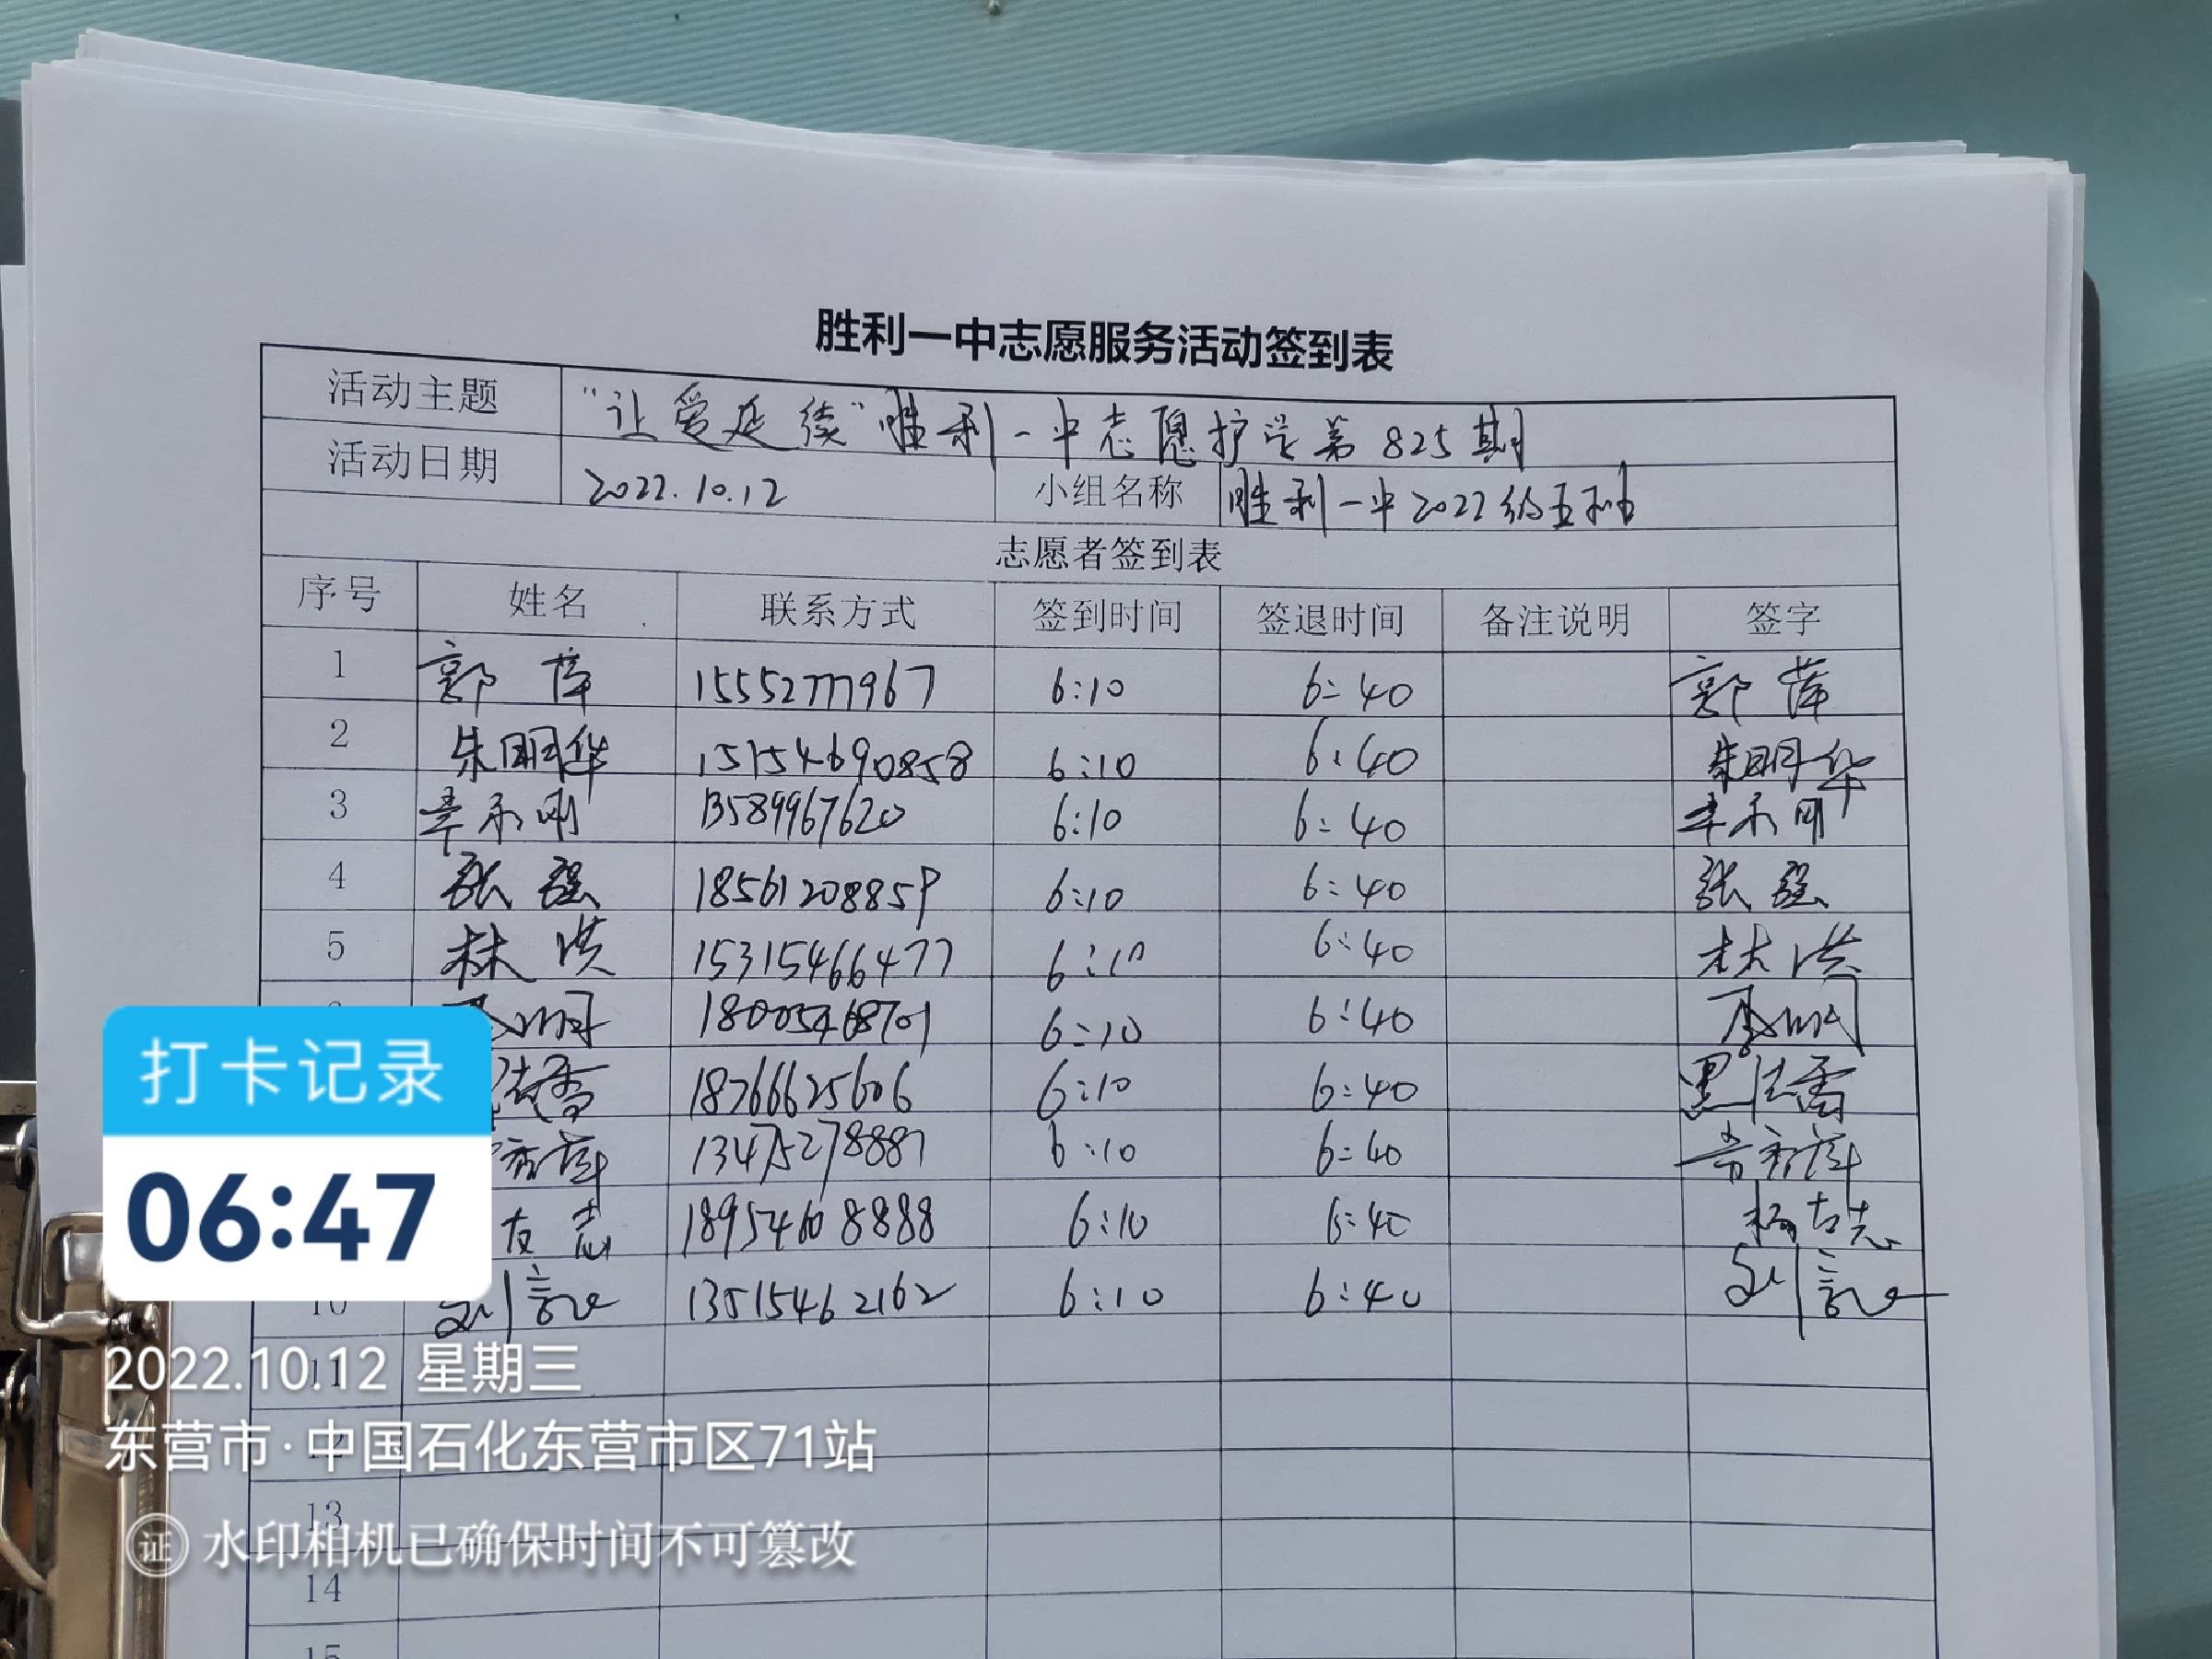 胜利一中志愿服务活动签到表
活动主题 "让爱延续"胜利一中志愿护学第825期
活动日期 2022.10.12 小组名称 胜利一中2022级五部
志愿者签到表
序号 姓名 联系方式 签到时间 签退时间 备注说明 签字
1 郭萍 15552777967 6:10 6:40 郭萍
2 朱明华 15154690858 6:10 6:40 朱明华
3 13589967620 6:10 6:40
4 张强 18561208859 6:10 6:40 张强
5 林洪 15315466477 6:10 6:40 林洪
18005468701 6:10 6:40
18766625606 6:10 6:40
13475278887 6:10 6:40
友志 18954608888 6:10 6:40 杨友志
10 刘 13515462162 6:10 6:40 刘
11
12
13
14
15
打卡记录
06:47
2022.10.12 星期三
东营市·中国石化东营市区71站
证 水印相机已确保时间不可篡改